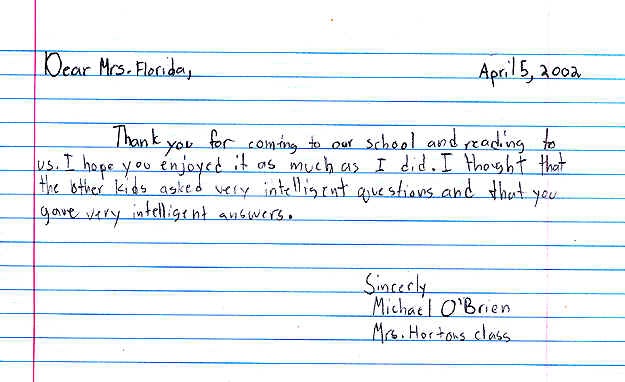 Dear Mrs. Florida, April 5, 2002
Thank you for coming to our school and reading to
us. I hope you enjoyed it as much as I did. I thought that
the other kids asked very intelligent questions and that you
gave very intelligent answers.
Sincerly
Michael O'Brien
Mrs. Hortons class